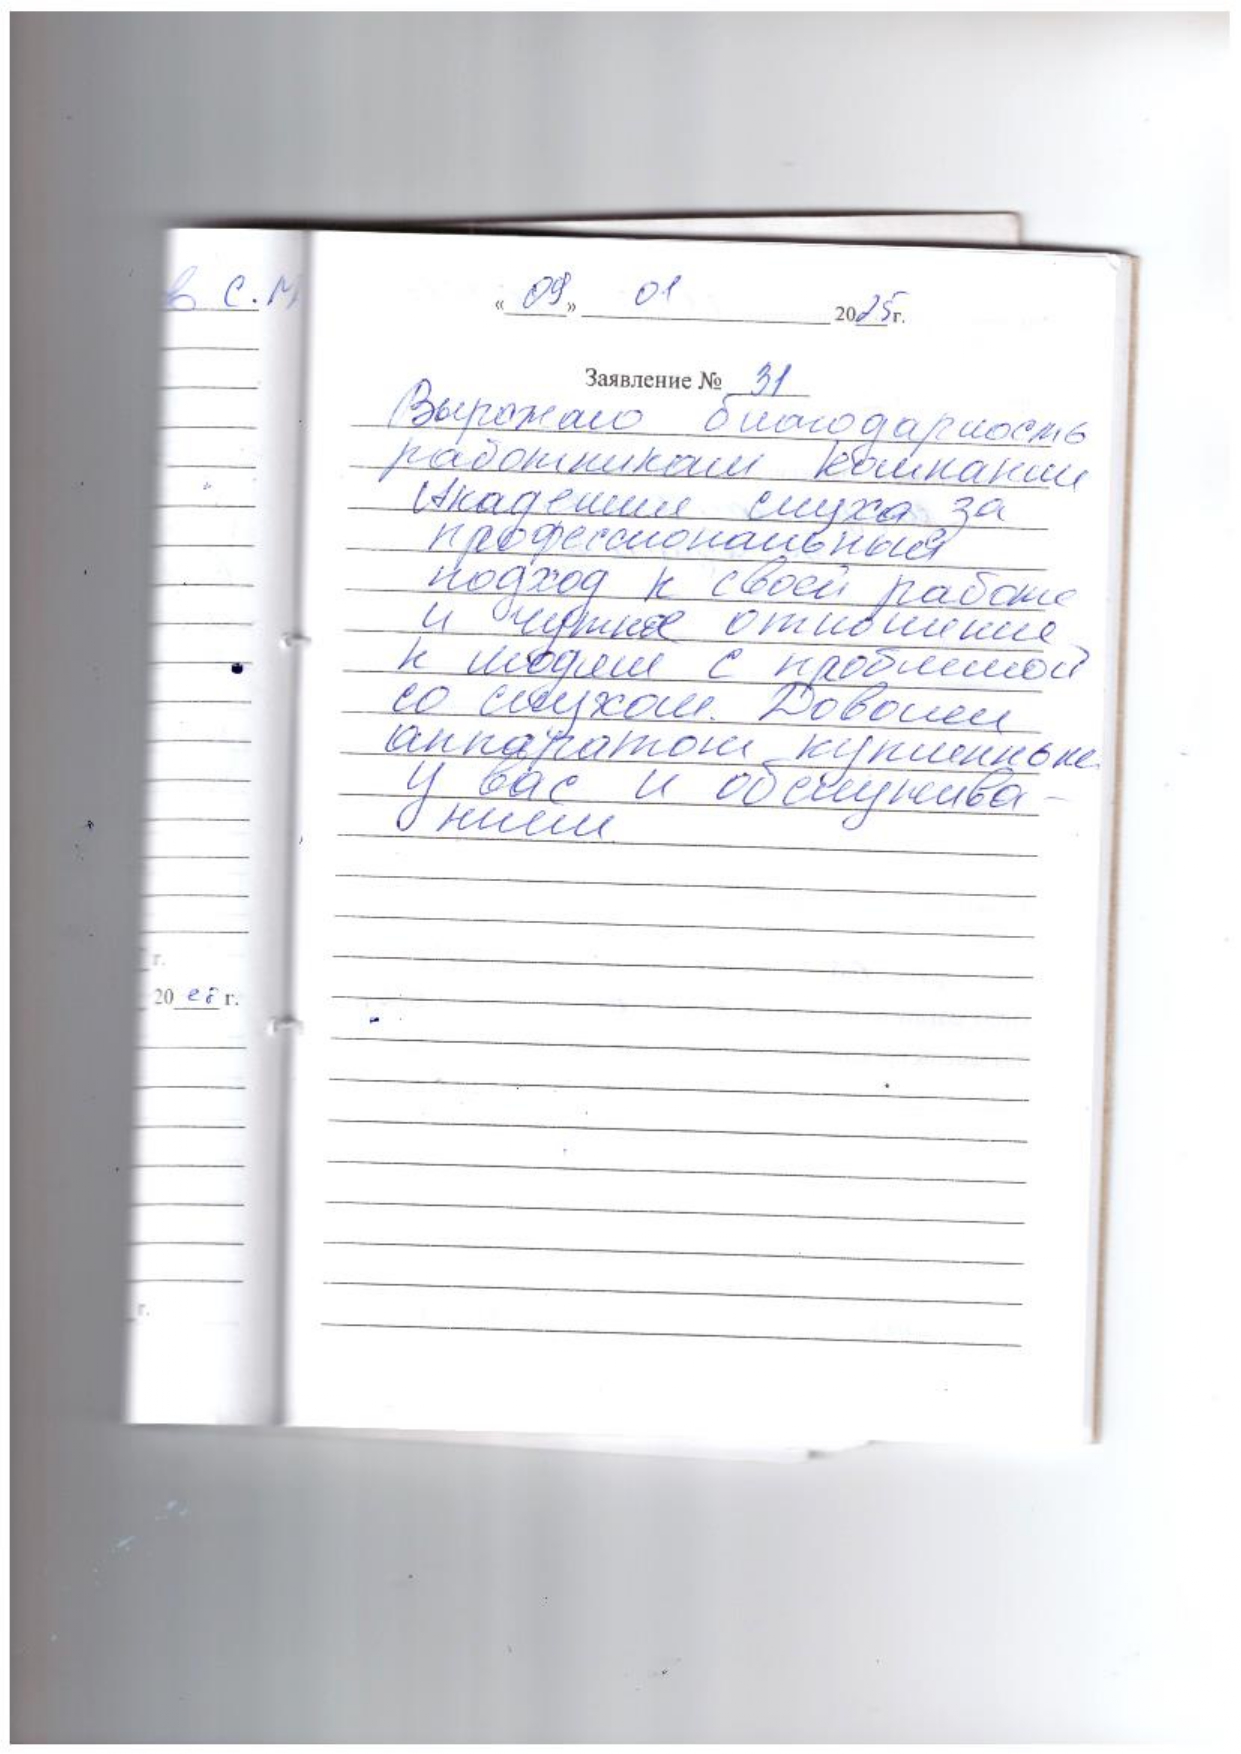 в С.М
« 09 » 01 2025 г.
Заявление № 31
Выражаю благодарность
работникам компании
Академия слуха за
профессиональный
подход к своей работе
и чуткое отношение
к людям с проблемой
со слухом. Доволен
аппаратом купленным
у вас и обслужива-
нием
г.
20 г.
г.